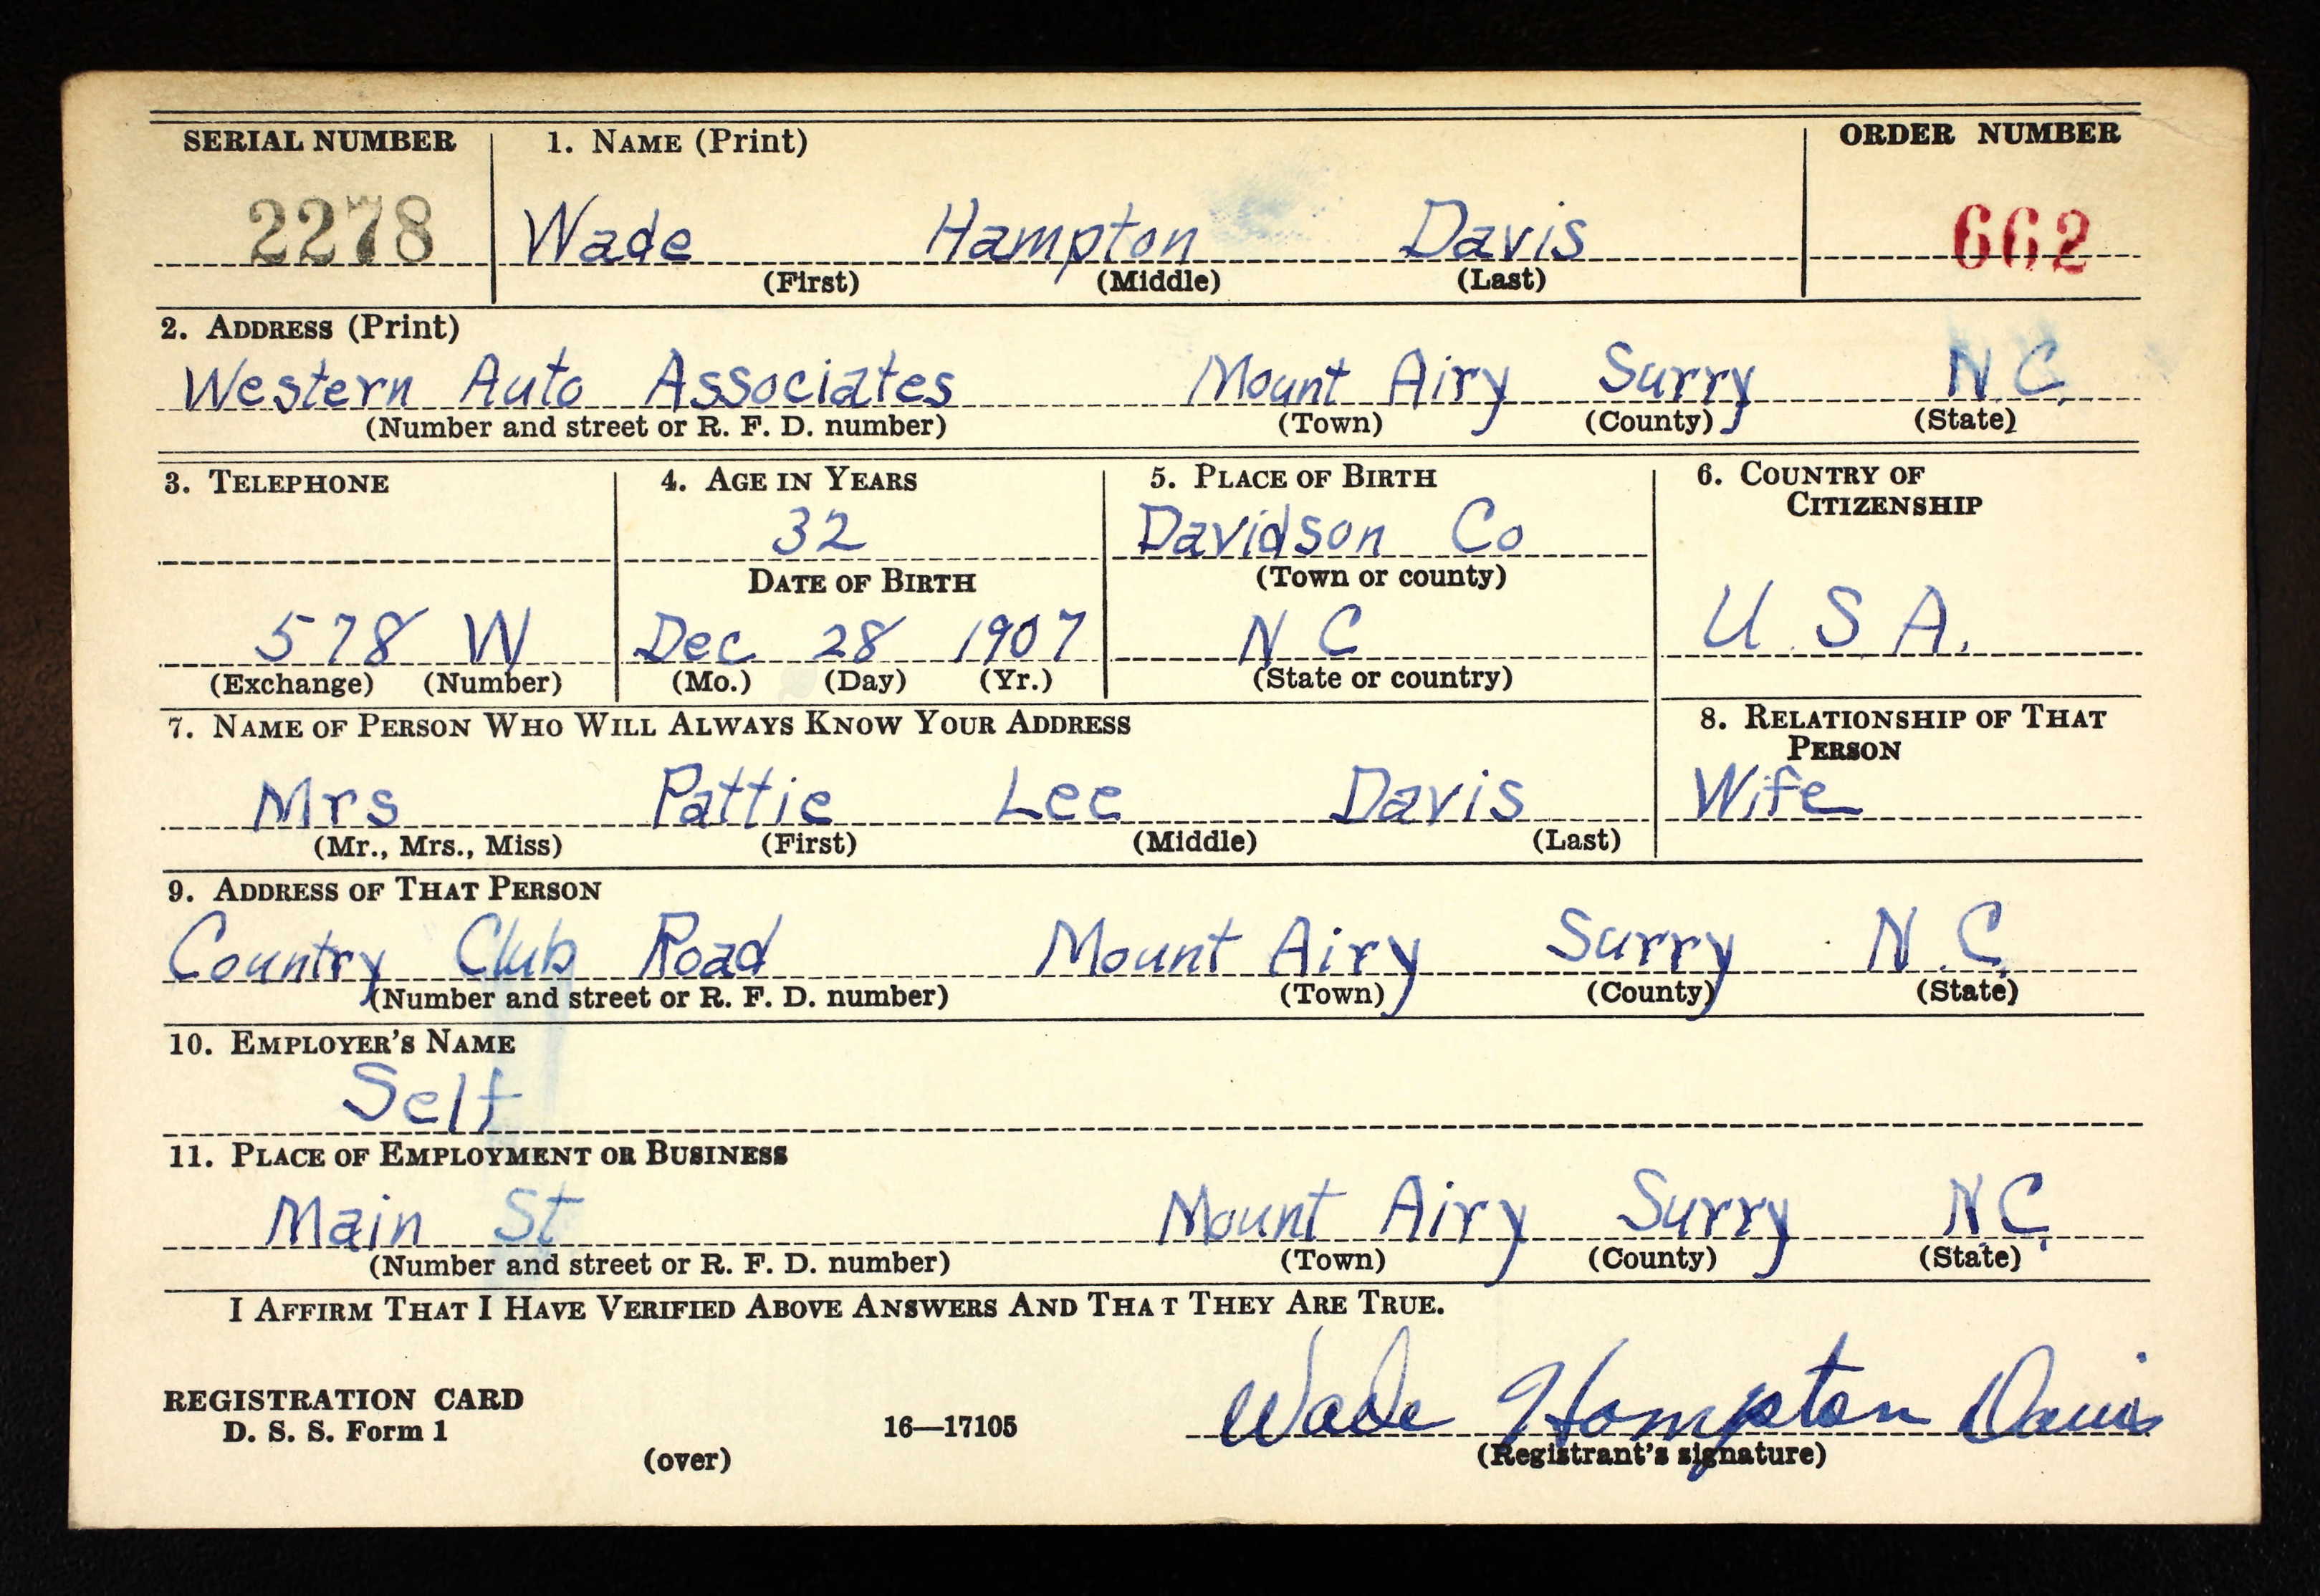 SERIAL NUMBER 1. NAME (Print) ORDER NUMBER
2278 Wade Hampton Davis 662
(First) (Middle) (Last)
2. ADDRESS (Print)
Western Auto Associates Mount Airy Surry N.C.
(Number and street or R. F. D. number) (Town) (County) (State)
3. TELEPHONE 4. AGE IN YEARS 5. PLACE OF BIRTH 6. COUNTRY OF CITIZENSHIP
32 Davidson Co
DATE OF BIRTH (Town or county)
578 W Dec 28 1907 N C U.S.A.
(Exchange) (Number) (Mo.) (Day) (Yr.) (State or country)
7. NAME OF PERSON WHO WILL ALWAYS KNOW YOUR ADDRESS 8. RELATIONSHIP OF THAT PERSON
Mrs Pattie Lee Davis Wife
(Mr., Mrs., Miss) (First) (Middle) (Last)
9. ADDRESS OF THAT PERSON
Country Club Road Mount Airy Surry N.C.
(Number and street or R. F. D. number) (Town) (County) (State)
10. EMPLOYER'S NAME
Self
11. PLACE OF EMPLOYMENT OR BUSINESS
Main St Mount Airy Surry N.C.
(Number and street or R. F. D. number) (Town) (County) (State)
I AFFIRM THAT I HAVE VERIFIED ABOVE ANSWERS AND THAT THEY ARE TRUE.
REGISTRATION CARD
D. S. S. Form 1 16—17105 Wade Hampton Davis
(over) (Registrant's signature)